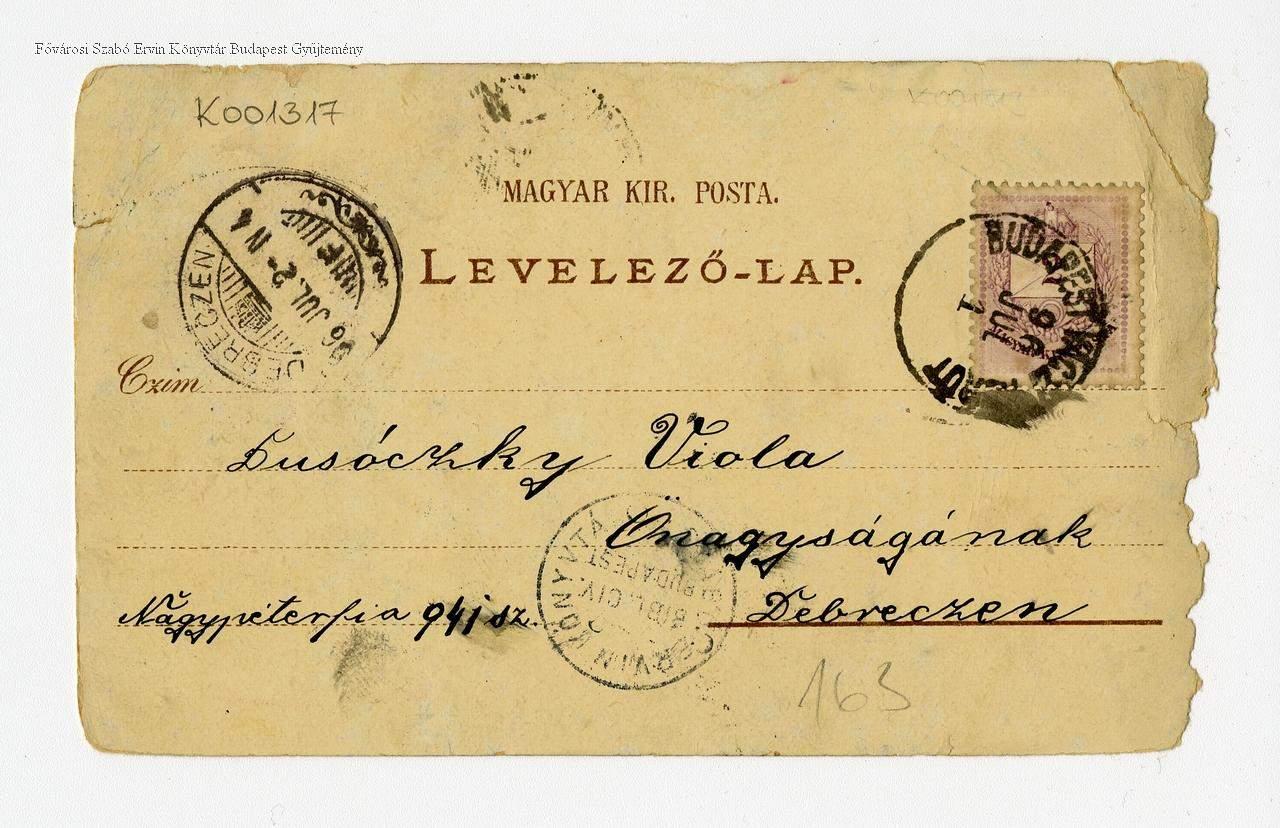 Fővárosi Szabó Ervin Könyvtár Budapest Gyűjtemény
K001317
K001317
MAGYAR KIR. POSTA.
LEVELEZŐ-LAP.
DEBRECZEN
96 JUL. 2-N 4
BUDAPEST
96
JUL
1
Czim
Lusóczky Viola
Önagyságának
Nagypéterfia 941 sz.
Debreczen
BIBL. CIV.
BUDAPEST
163